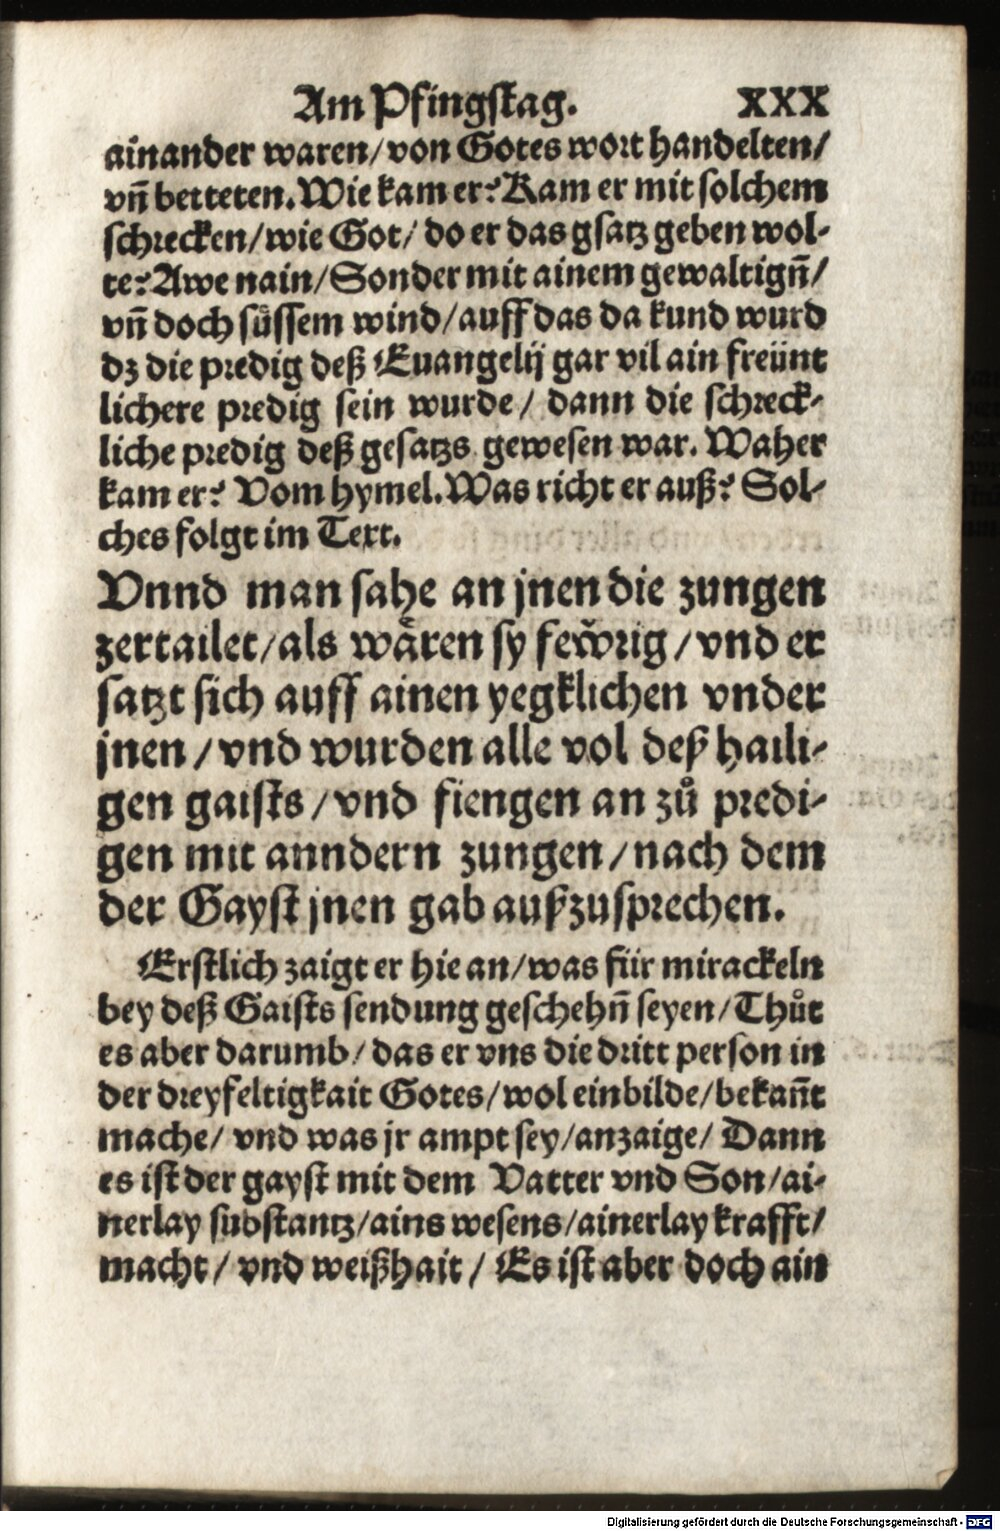 Am Pfingstag. XXX
ainander waren/von Gotes wort handelten/
vñ betteten. Wie kam er? Kam er mit solchem
schrecken/wie Got/ do er das gsatz geben wol-
te? Awe nain/Sonder mit ainem gewaltigñ/
vñ doch süssem wind/auff das da kund wurd
dz die predig deß Euangelij gar vil ain freünt
lichere predig sein wurde/ dann die schreck-
liche predig deß gesatzs gewesen war. Waher
kam er? Vom hymel. Was richt er auß? Sol-
ches folgt im Text.
Vnnd man sahe an jnen die zungen
zertailet/als wåren sy few̌rig/vnd er
satzt sich auff ainen yegklichen vnder
jnen/vnd wurden alle vol deß haili-
gen gaists/vnd fiengen an zů predi-
gen mit anndern zungen/nach dem
der Gayst jnen gab außzusprechen.
Erstlich zaigt er hie an/was für mirackeln
bey deß Gaists sendung geschehñ seyen/Thůt
es aber darumb/das er vns die dritt person in
der dreyfeltigkait Gotes/wol einbilde/bekañt
mache/ vnd was jr ampt sey/anzaige/ Dann
es ist der gayst mit dem Vatter vnd Son/ai-
nerlay substantz/ains wesens/ainerlay krafft/
macht/ vnd weißhait/ Es ist aber doch ain
Digitalisierung gefördert durch die Deutsche Forschungsgemeinschaft - DFG